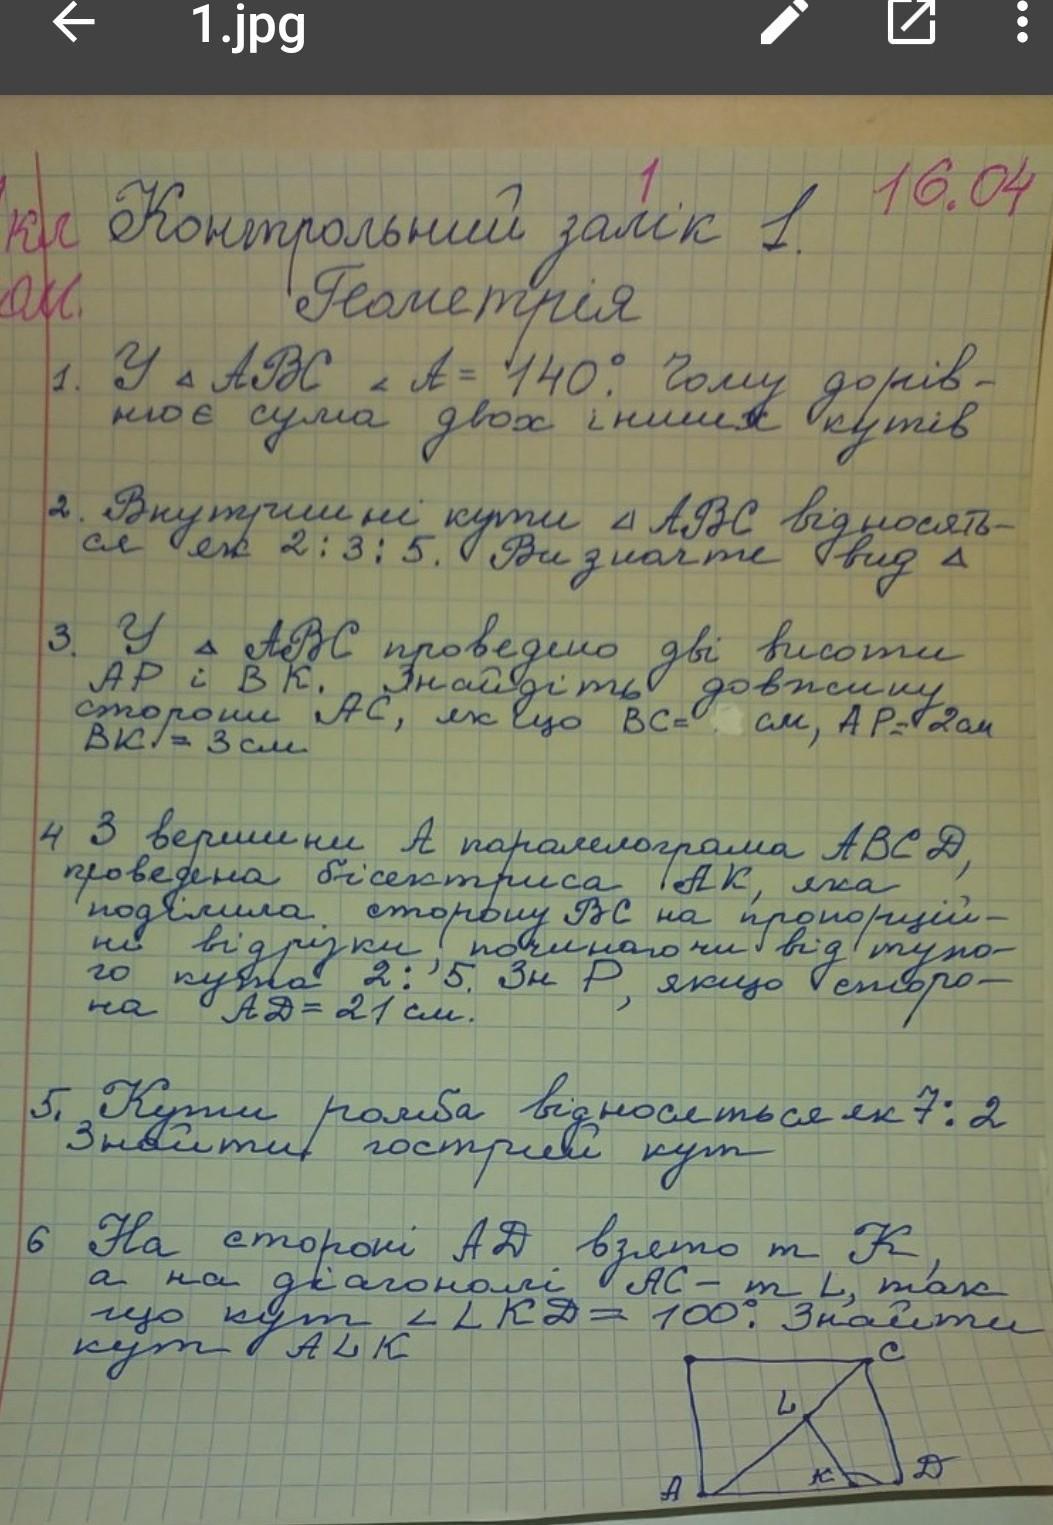 1.jpg
1
16.04
кл Контрольний залік 1.
Геометрія
1. У △ ABC ∠ A = 140°. Чому дорів-
нює сума двох інших кутів
2. Внутрішні кути △ ABC відносять-
ся як 2:3:5. Визначте вид △
3. У △ ABC проведено дві висоти
AP і BK. Знайдіть довжину
сторони AC, якщо BC= см, AP= 2см
BK = 3 см.
4 З вершини A паралелограма ABCD,
проведена бісектриса AK, яка
поділила сторону BC на пропорцій-
ні відрізки починаючи від тупо-
го кута 2:5. Зн P, якщо сторо-
на AD = 21 см.
5. Кути ромба відносяться як 7:2
Знайти гострий кут
6 На стороні AD взято т K,
а на діагоналі AC - т L, так
що кут ∠ LKD = 100°. Знайти
кут ALK
C
L
A K D